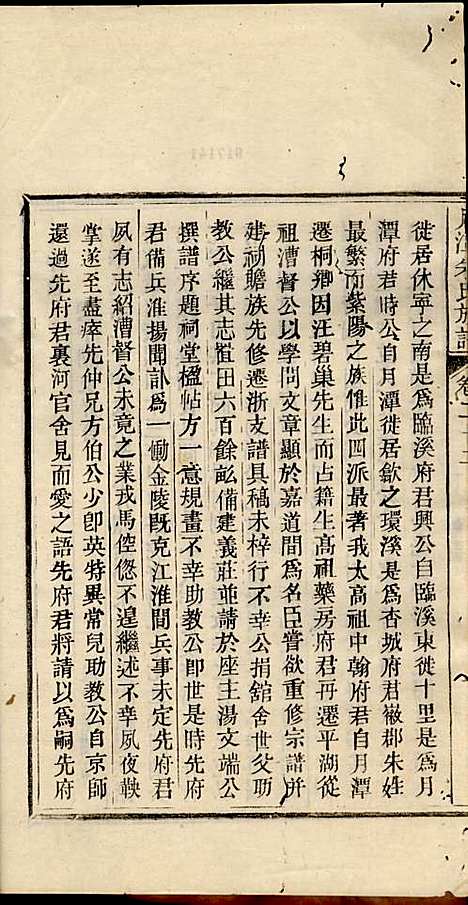 徙居休寧之南是爲臨溪府君興公自臨溪東徙十里是爲月
潭府君時公自月潭徙居歙之環溪是爲杏城府君徽郡朱姓
最繁而紫陽之族惟此四派最著我太高祖中翰府君自月潭
遷桐鄉因汪碧巢先生而占籍生高祖藥房府君再遷平湖從
祖漕督公以學問文章顯於嘉道間爲名臣嘗欲重修宗譜併
建祠贍族先修遷浙支譜具稿未梓行不幸公捐舘舍世父助
教公繼其志置田六百餘畝備建義莊並請於座主湯文端公
撰譜序題祠堂楹帖方一意規畫不幸助教公卽世是時先府
君備兵淮揚聞訃爲一慟金陵旣克江淮間兵事未定先府君
夙有志紹漕督公未竟之業戎馬倥偬不遑繼述不幸夙夜鞅
掌遂至盡瘁先仲兄方伯公少卽英特異常兒助教公自京師
還過先府君裏河官舍見而愛之語先府君將請以爲嗣先府